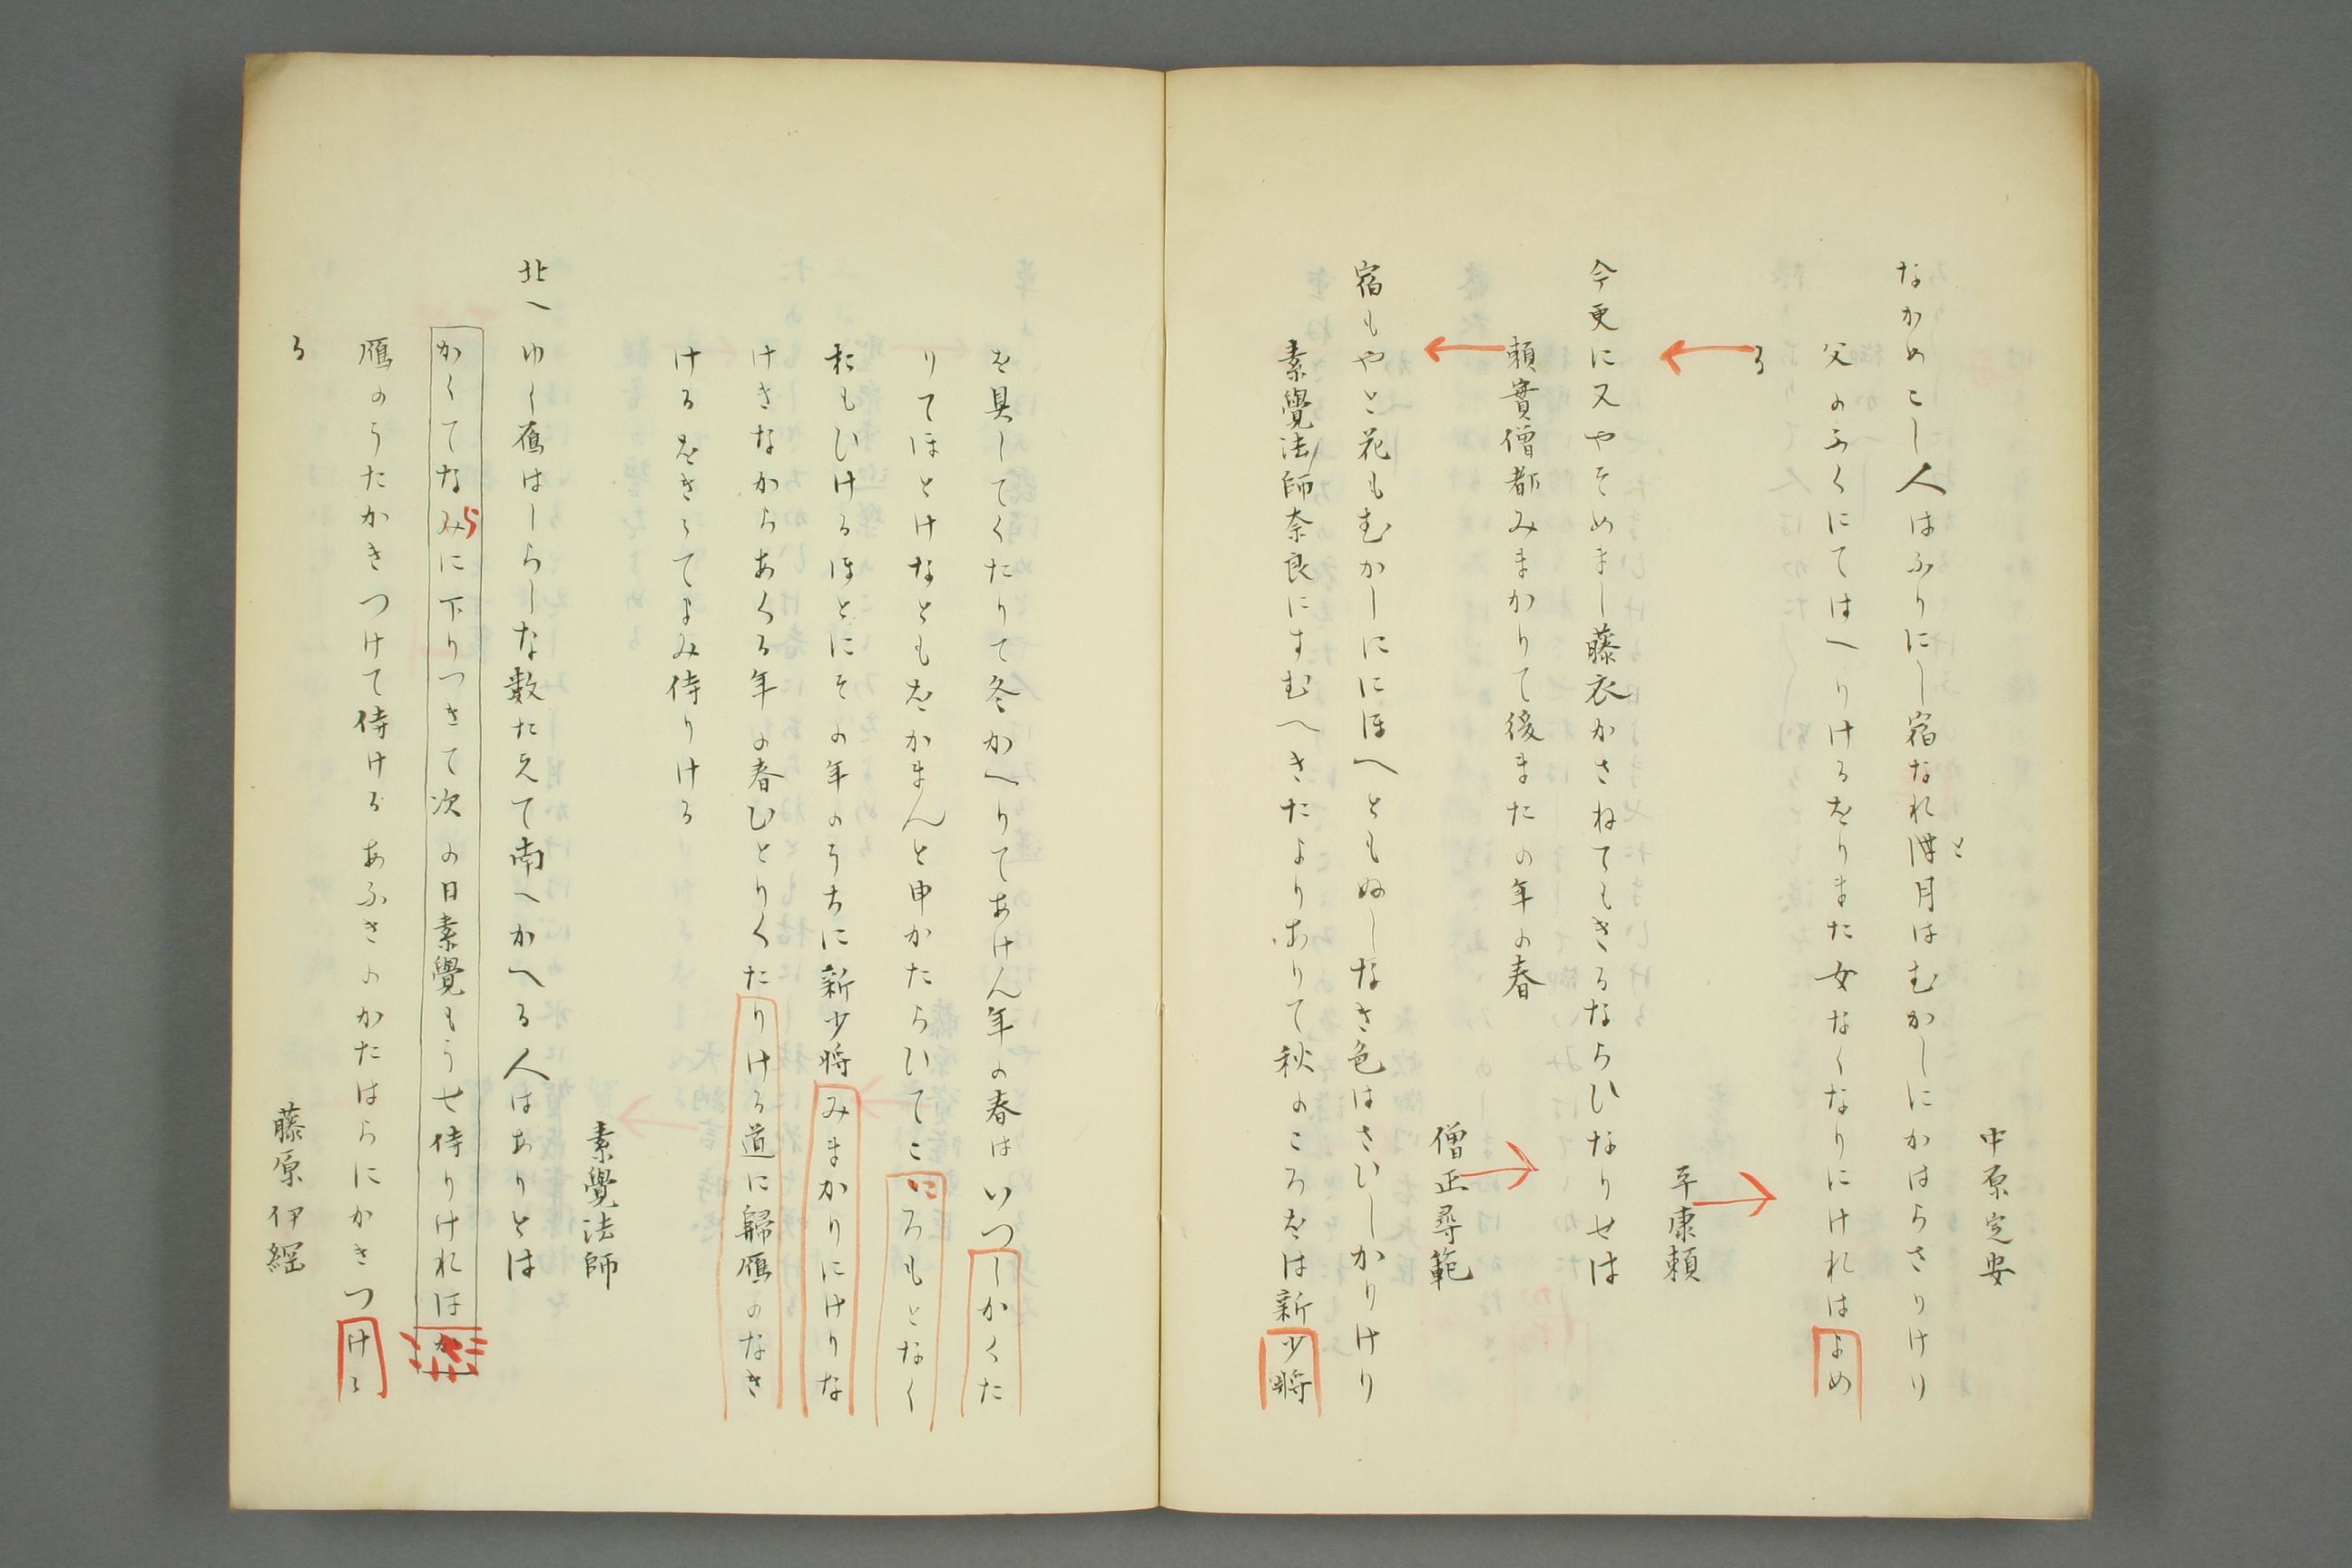 中原定安
なかめこし人はふりにし宿なれと月はむかしにかはらさりけり
父のふくにてはへりけるをりまた女なくなりにけれはよめ
る
平康頼
今更に又やそめまし藤衣かさねてもきるならひなりせは
頼實僧都みまかりて後またの年の春
僧正尋範
宿もやと花もむかしににほへともぬしなき色はさひしかりけり
素覺法師奈良にすむへきたよりありて秋のころをは新少将
を具してくたりて冬かへりてあけん年の春はいつしかくた
りてほとけなともをかまんと申かたらひてこころもとなく
おもひけるほとにその年のうちに新少将みまかりにけりな
けきなからあくる年の春ひとりくたりける道に歸雁のなき
けるをきゝてよみ侍りける
素覺法師
北へゆく雁はしらしな數たえて南へかへる人はありとは
かくてならに下りつきて次の日素覺もうせ侍りけれはか
雁のうたかきつけて侍けるあふきのかたはらにかきつける
る
藤原伊綱